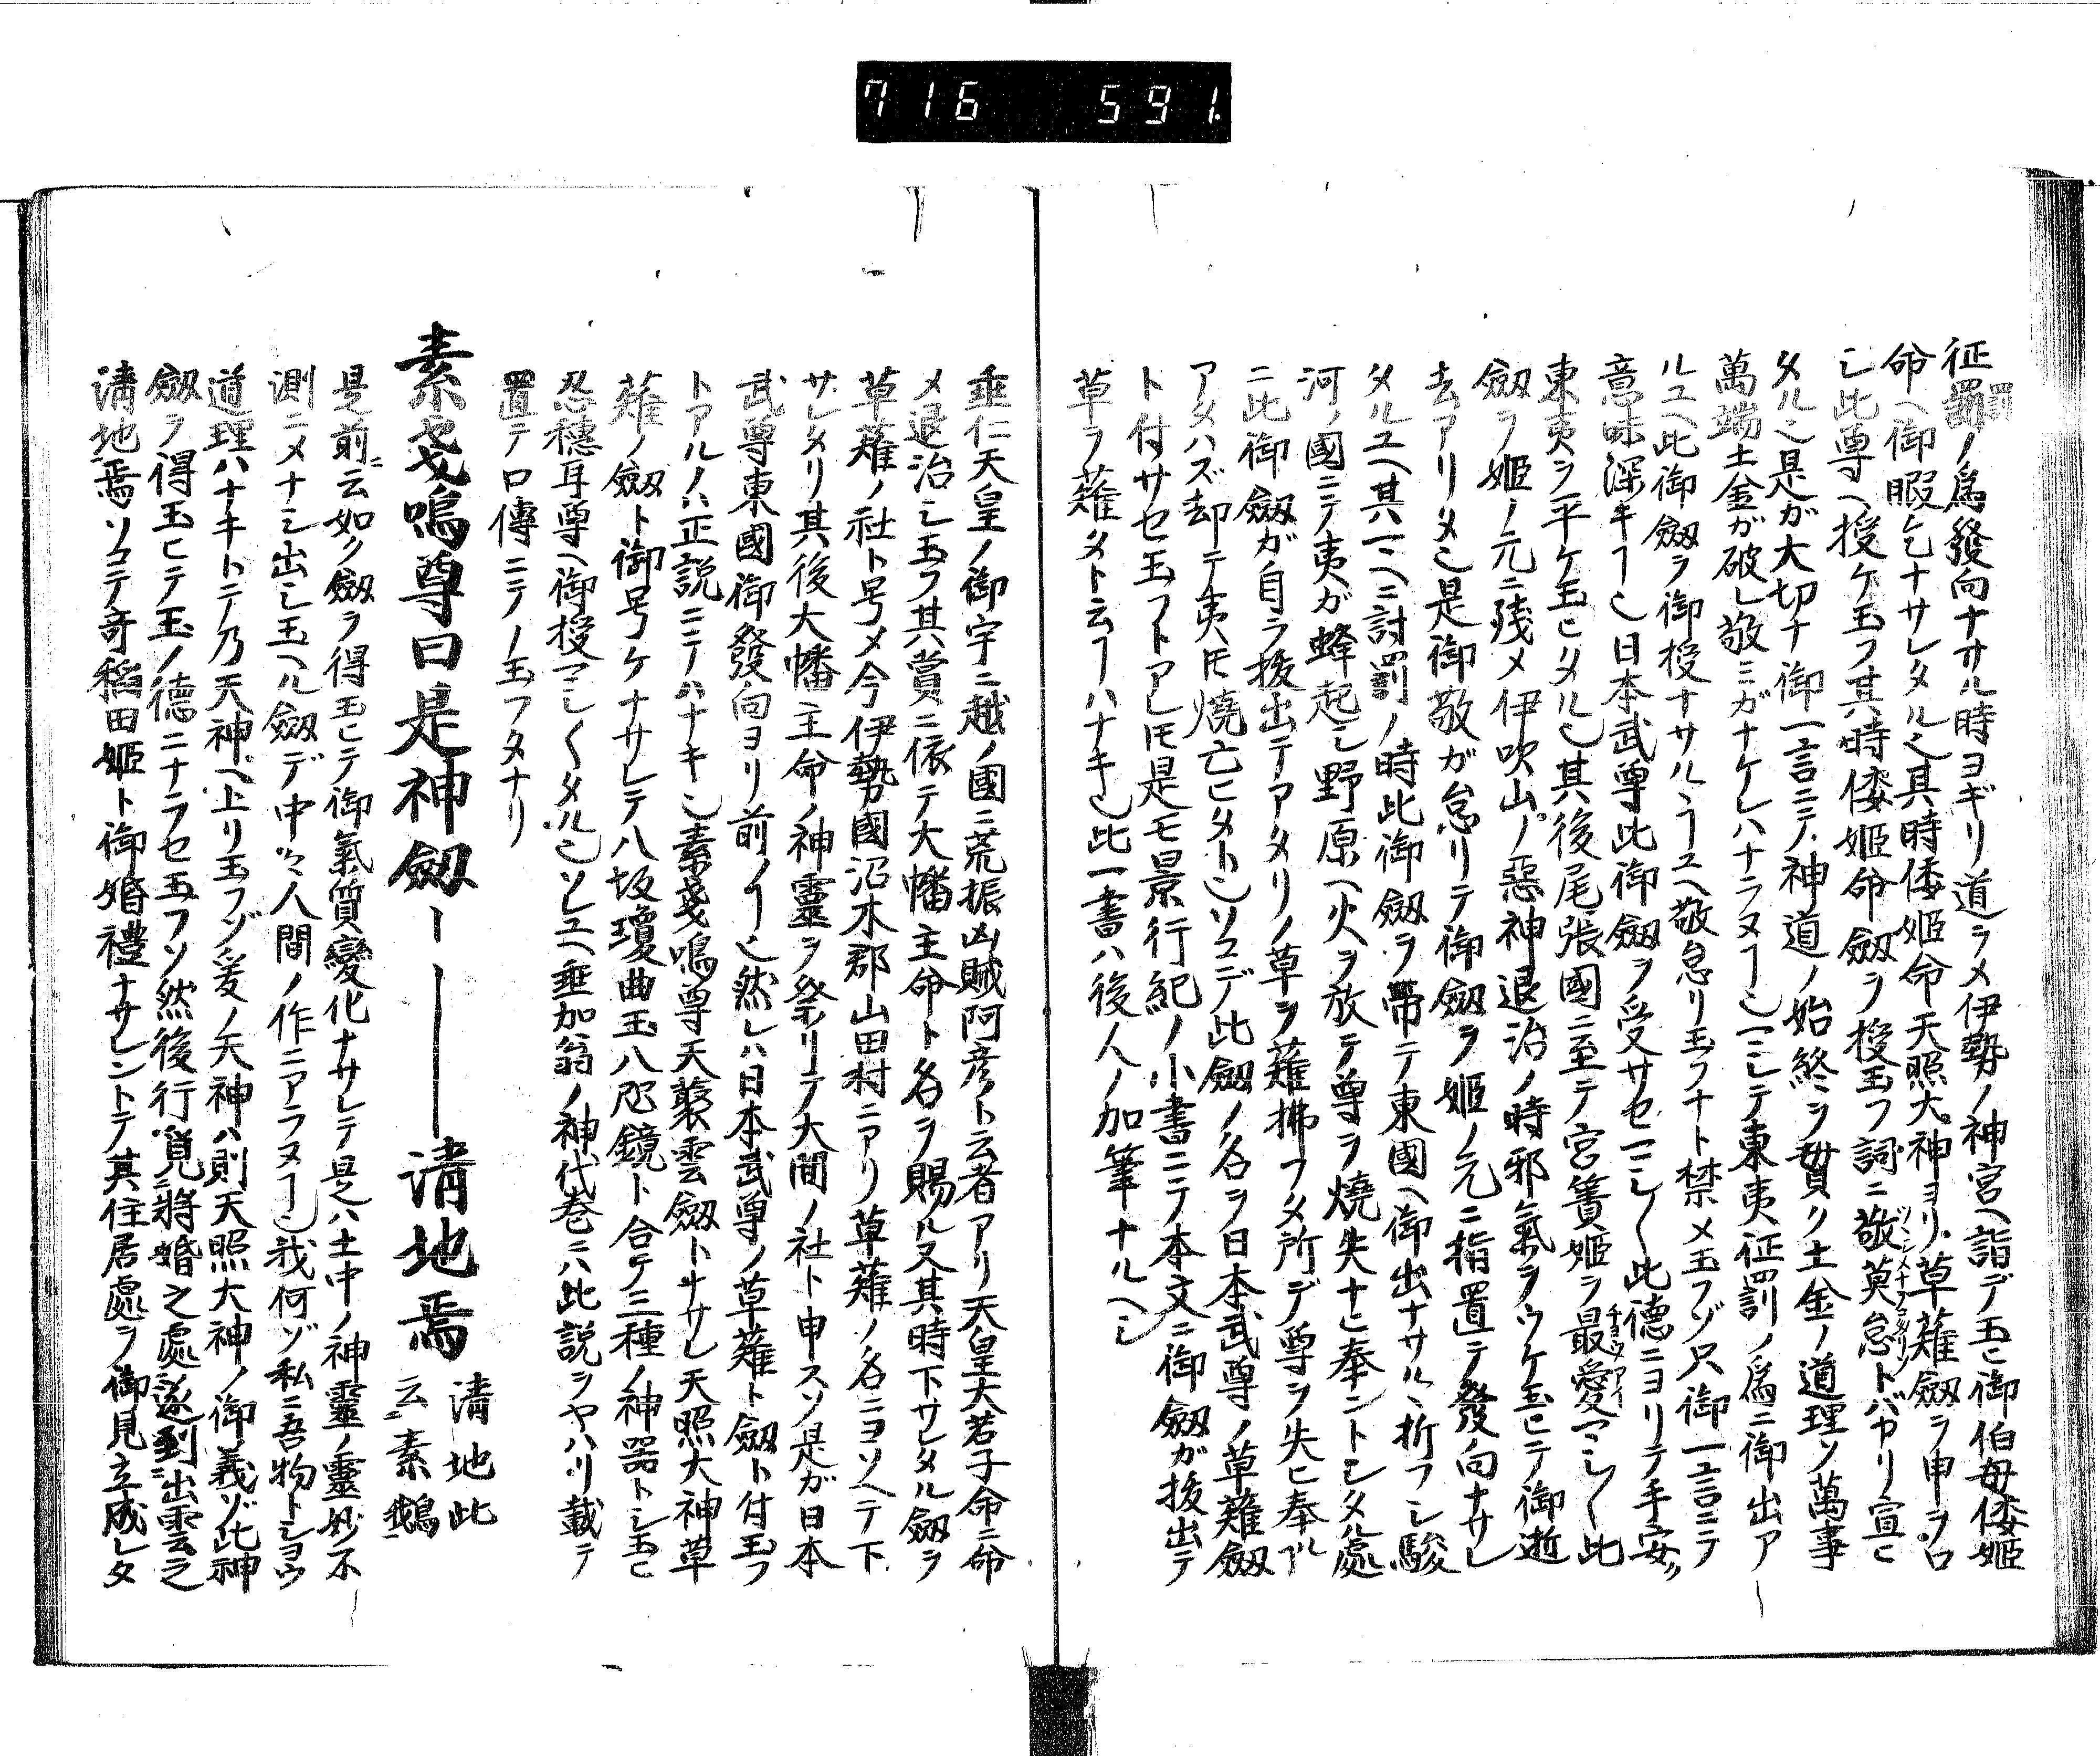 716 591.
征罸ノ爲發向ナサル時ヨギリ道ラメ伊勢ノ神宮ヘ詣デ玉ヒ御伯母倭姫
命ヘ御暇乞ナサレタル𪜈其時倭姫命天照大神ヨリ草薙劔ラ申ヲロ
シ此尊ヘ授ケ玉フ其時倭姫命劔ヲ授玉フ詞ニ敬莫怠トバカリ宣ヒ
タル是ガ大切ナ御一言ニテ神道ノ始終ヲ貫ク土金ノ道理ソ萬事
萬端土金ガ破レ敬ミガナケレハナラヌヿ也 東夷征罸ノ爲ニ御出ア
ルユヘ此御劔ラ御授ナサルヽヿユヘ敬怠リ玉フナト禁メ玉フゾ只御一言ニテ
意味深キヿ也日本武尊此御劔ヲ受サセ 此德ニヨリテ手安〃
東夷ヲ平ケ玉ヒタル也其後尾張國ニ至テ宮簀姫ヲ最愛マシ〱此
劔ヲ姫ノ元ニ残メ伊吹山ノ惡神退治ノ時邪氣ヲウケ玉ヒテ御逝
去アリタ也是御敬ガ怠リテ御劔ヲ姫ノ元ニ指置テ發向ナサレ
タルユヘ其 討罰ノ時此御劔ラ帶テ東國ヘ御出ナサルヽ折フシ駿
河ノ國ニテ夷ガ蜂起シ野原ヘ火ヲ放テ尊ヲ燒失ナヒ奉ントシタル處
ニ此御劔ガ自ラ拔出テアタリノ草ヲ薙拂フメ所デ尊ヲ失ヒ奉ル
アタハズ却テ夷𪜈燒亡ヒタト也ソコデ此劔ノ名ヲ日本武尊ノ草薙劔
ト付サセ玉フトアレ𪜈是モ景行紀ノ小書ニテ本文ニ御劔ガ拔出テ
草ヲ薙タト云ヿハナキ也此一書ハ後人ノ加筆ナルヘシ
垂仁天皇ノ御宇ニ越ノ國ニ荒振凶賊阿彦ト云者アリ天皇大若子命ニ命
メ退治シ玉フ其賞ニ依テ大幡主命ト名ヲ賜ル又其時下サレタル劔ヲ
草薙ノ社ト号メ今伊勢國沼木郡山田村ニアリ草薙ノ名ニヨソヘテ下
サレタリ其後大幡主命ノ神靈ヲ祭リテ大間ノ社ト申スソ是ガ日本
武尊東國御發向ヨリ前ノヿ也然レハ日本武尊ノ草薙ト劔ト付玉フ
トアルノハ正説ニテハナキ也素戔嗚尊天䕺雲劔トナサレ天照大神草
薙ノ劔ト御号ケナサレテ八坂瓊曲玉八咫鏡ト合テ三種ノ神器トシ玉ヒ
忍穗耳尊ヘ御授マシ〱タル也ソレユヘ垂加翁ノ神代巻ニハ此説ヲヤハリ載テ
置テ口傳ニテノ玉フタナリ
素戔嗚尊曰是神劔ーーー清地焉 清地此云素鵝
是前ニ云如ク劔ラ得玉ヒテ御氣質變化ナサレテ是ハ土中ノ神靈ノ靈妙不
測ニメナシ出シ玉ヘル劔デ中々人間ノ作ニアラヌヿ也我何ゾ私ニ吾物トシヨウ
道理ハナキトニテ乃天神ヘ上リ玉フゾ爰ノ天神ハ則天照大神ノ御義ゾ此神
劔ヲ得玉ヒテ玉ノ德ニナラセ玉フソ然後行覓將婚之處遂到出雲之
清地焉ソコテ奇稻田姫ト御婚禮ナサレントテ其住居處ヲ御見立成レタ